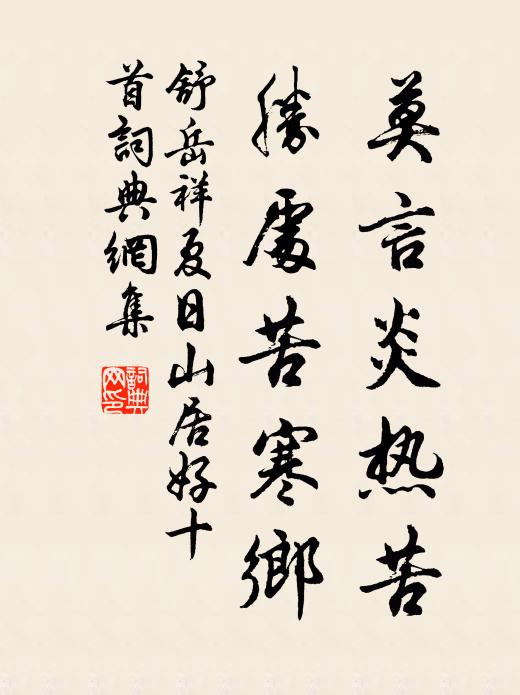 莫言炎热苦
勝處苦寒鄉
舒岳祥夏日山居好十
首詞典網集
詞典
网印